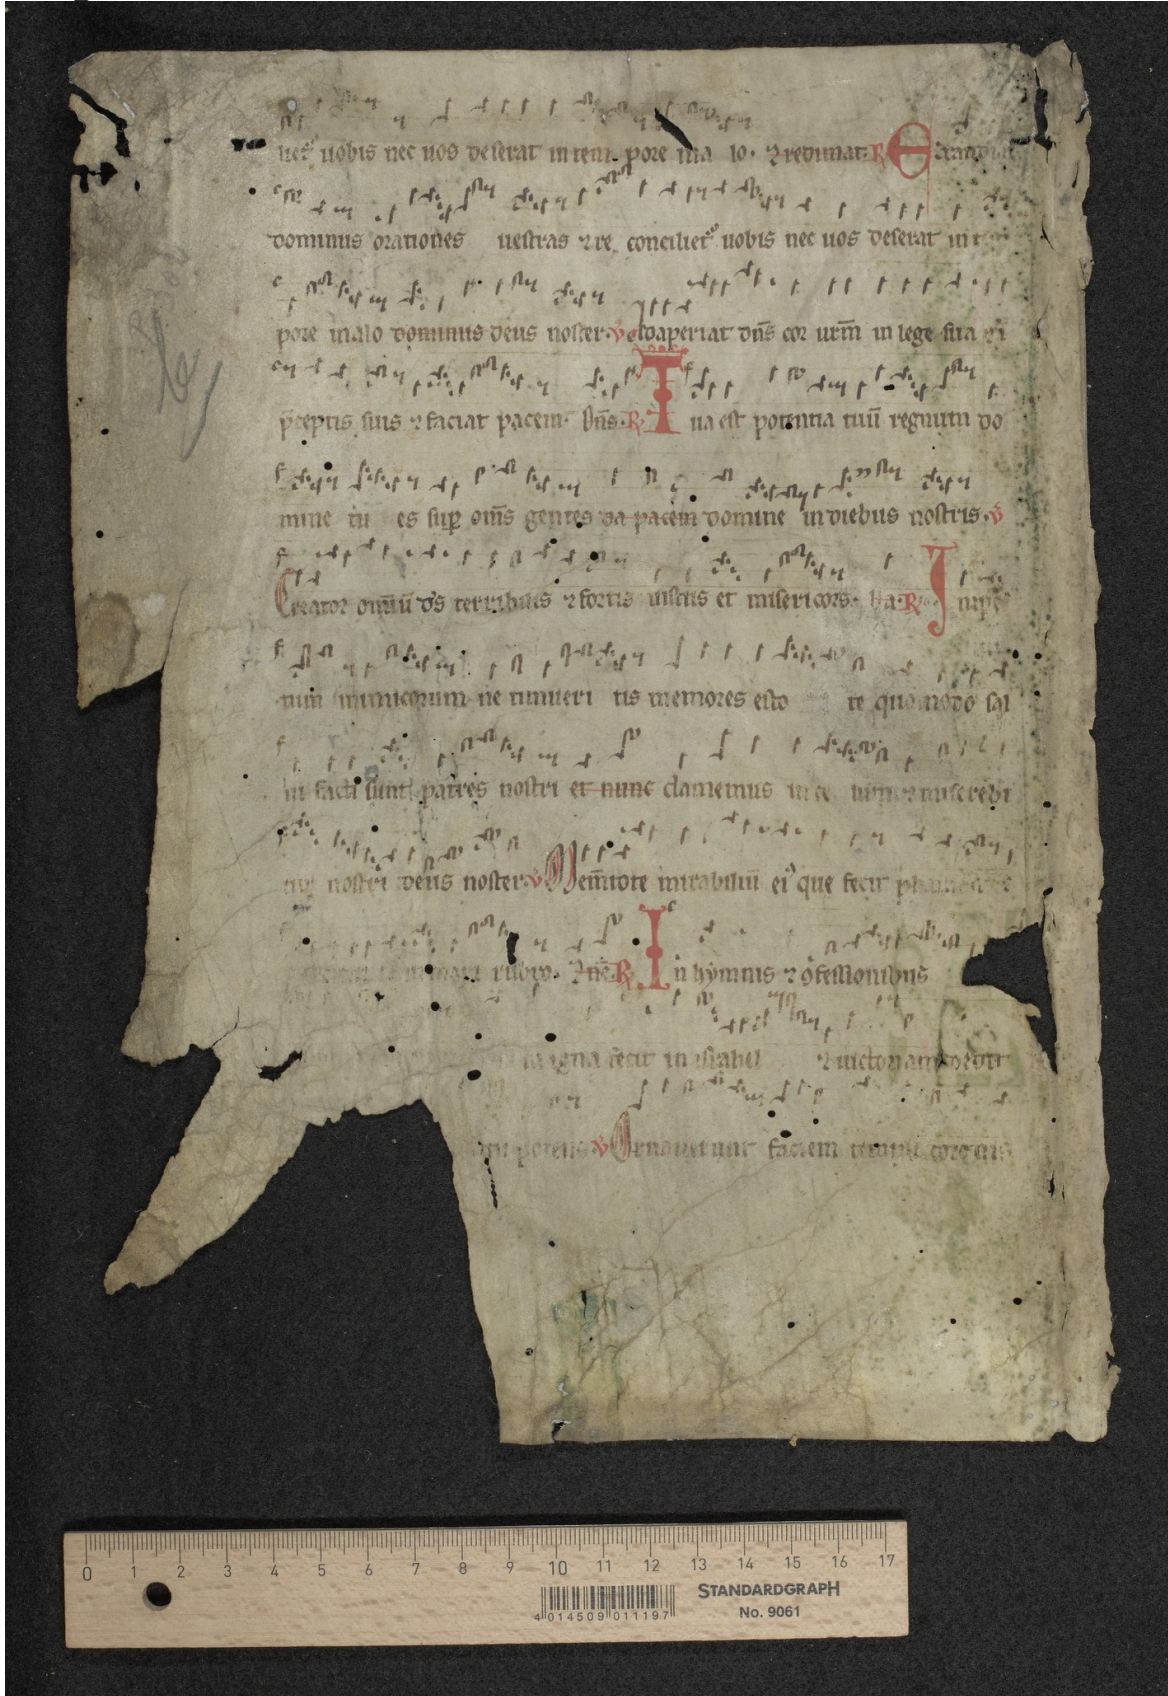 uobis nec uos deserat in tem pore ma lo · ⁊ redimat · R E
dominus orationes uestras ⁊ re conciliet᷒ uobis nec uos deserat in
pore malo dominus deus noster · v Adaperiat dn̄s cor ur̄m in lege sua
p̄ceptis suis ⁊ faciat pacem · Dn̄s · R T ua est potentia tuū regnum do
mine tu es sup om̄s gentes da pacem domine in diebus nostris · v
Creator omniū ds terribilis ⁊ fortis iustus et misericors · Da · R I mpe
tum inimicorum ne timueri tis memores esto te quomodo sal
ui facti sunt patres nostri et nunc clamemus in ce lum ⁊ miserebi
tur nostri deus noster · v Mem̄tote mirabiliū ei᷒ que fecit
rubro · R I n hymnis ⁊ ꝯfessionibus
magna fecit in israhel ⁊ uictoriam dedit
potens v Ornauerunt faciem templi coronis
STANDARDGRAPH
No. 9061
4 014509 011197
0 1 2 3 4 5 6 7 8 9 10 11 12 13 14 15 16 17